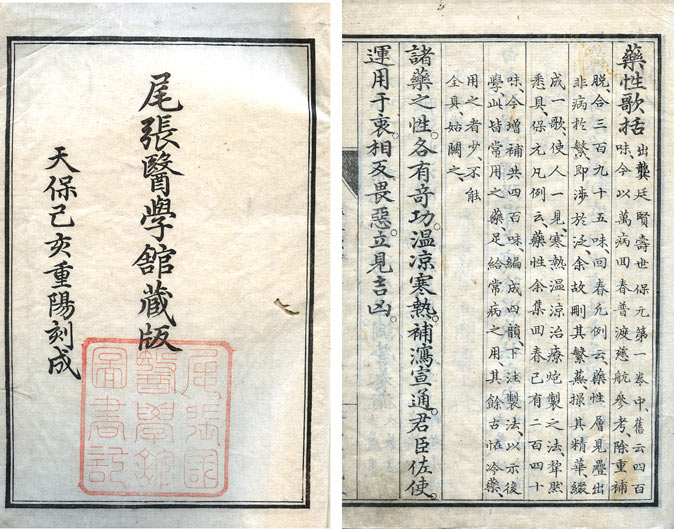 尾張醫學舘藏版
天保己亥重陽刻成
尾張國
醫學舘
圖書記
藥性歌括
出龔廷賢壽世保元第一卷中、舊云四百
味、今以萬病回春普渡慈航參考、除重補
脫合三百九十五味、回春凡例云、藥性層見疊出
非病於繁、即涉於泛、余故刪其繁蕪、撮其精華、綴
成一歌、使人一見、寒熱溫凉治療炮製之法、犂然
悉具、保元凡例云、藥性余集回春、已有二百四十
味、今增補共四百味、編成四韻、下注製法、以示後
學、此皆常用之藥、足給常病之用、其餘古怪冷藥、
用之者少、不能
全具、姑闕之、
諸藥之性。各有奇功。溫凉寒熱。補瀉宣通。君臣佐使。
運用于衷。相反畏惡。立見吉凶。